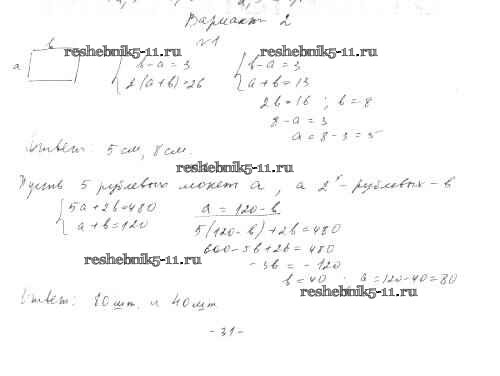 Вариант 2
№1
b
a
{ b-a=3
2(a+b)=26
{ b-a=3
a+b=13
2b=16 ; b=8
8-a=3
a=8-3=5
Ответ: 5 см, 8 см.
Пусть 5 рублевых монет a, а 2х-рублевых - b
{ 5a+2b=480
a+b=120
a=120-b
5(120-b)+2b=480
600-5b+2b=480
-3b=-120
b=40 ; a=120-40=80
Ответ: 80 шт. и 40 шт.
-31-
reshebnik5-11.ru
reshebnik5-11.ru
reshebnik5-11.ru
reshebnik5-11.ru
reshebnik5-11.ru